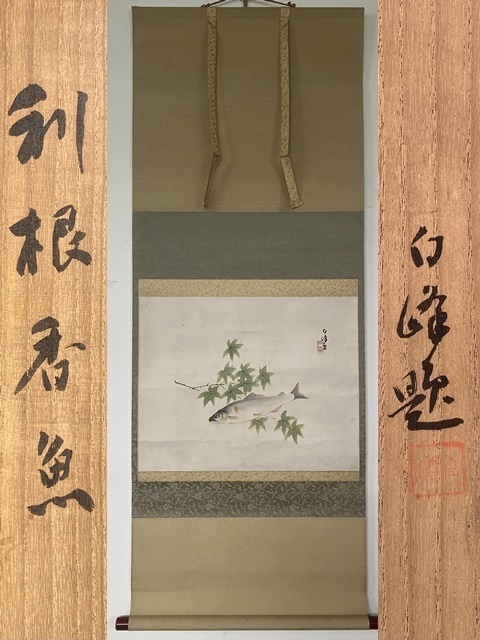 利根香魚
白峰題